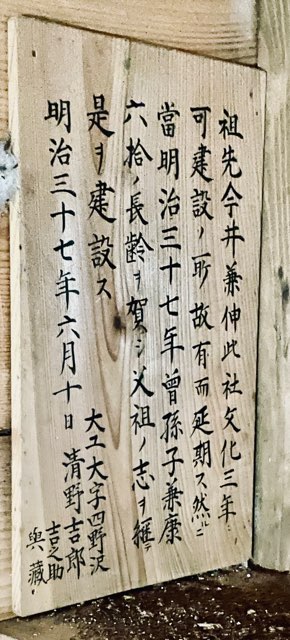 祖先今井兼伸此社文化三年
可建設ノ所故有而延期ス然ルニ
當明治三十七年曾孫子兼康
六拾ノ長齢ヲ賀シ父祖ノ志ヲ継テ
是ヲ建設ス
明治三十七年六月十日
大工大字四野沢
清野吉郎
吉之助
與藏